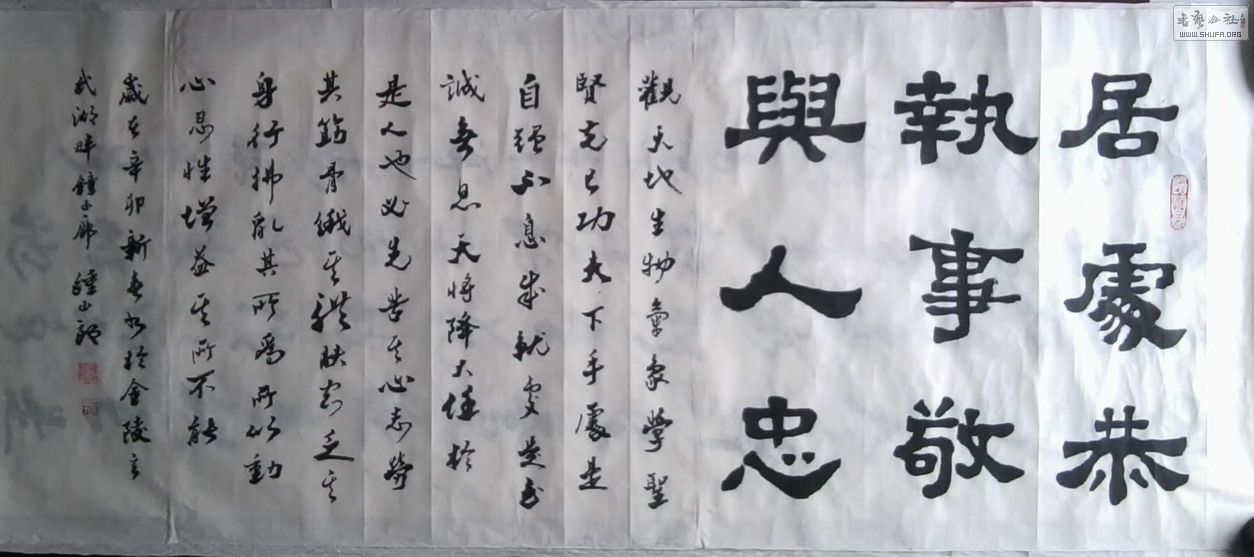 居處恭
執事敬
與人忠
觀天地生物氣象學聖
賢克己功夫下手處是
自强不息成就處是至
誠無息天將降大任於
是人也必先苦其心志勞
其筋骨餓其體膚空乏其
身行拂亂其所為所以動
心忍性增益其所不能
歲在辛卯新春書於金陵玄
武湖畔鐘山
書藝公社
WWW.SHUFA.ORG